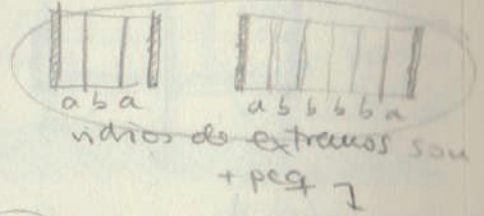 a b a a b b b b a
vidrios de extremos son
+ peq